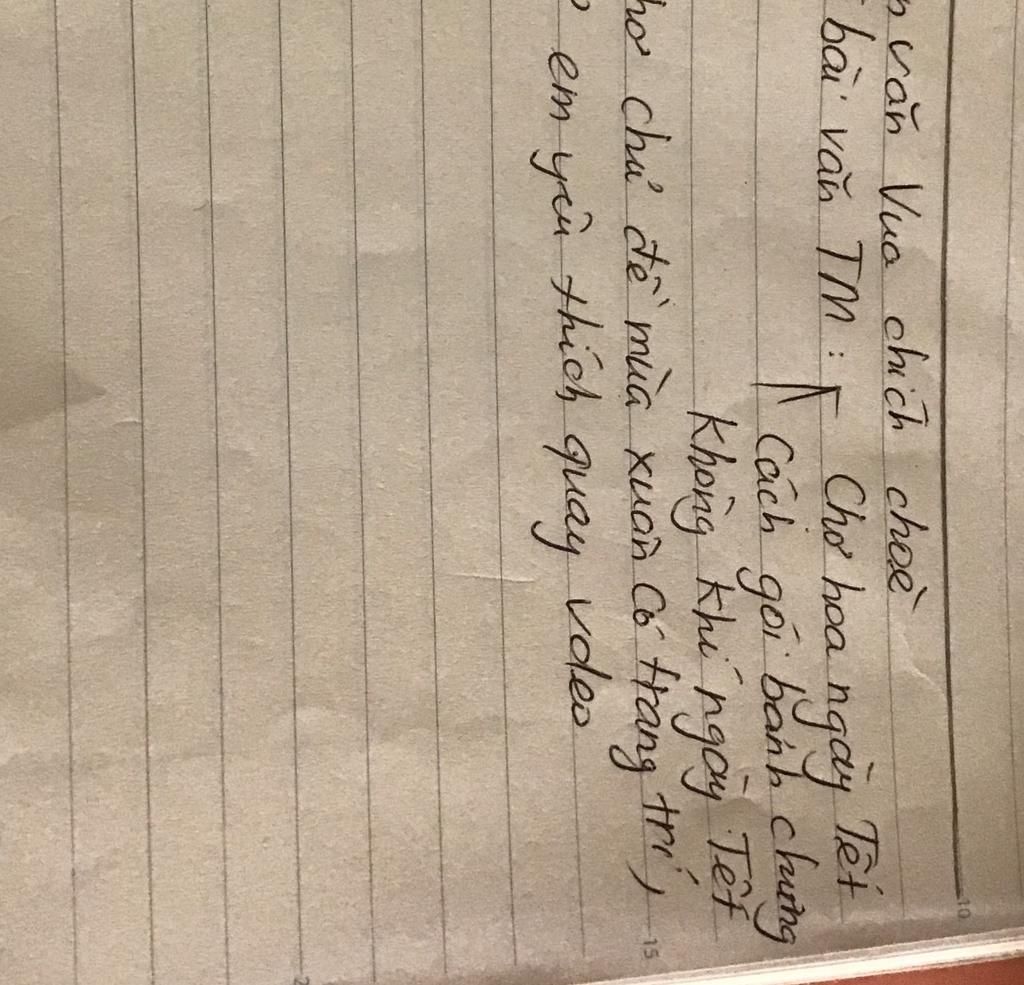 văn Vua chích choè
bài văn TM: Chợ hoa ngày Tết
Cách gói bánh chưng
Không khí ngày Tết
thơ chủ đề mùa xuân có trang trí,
em yêu thích quay vdeo
10
15
2